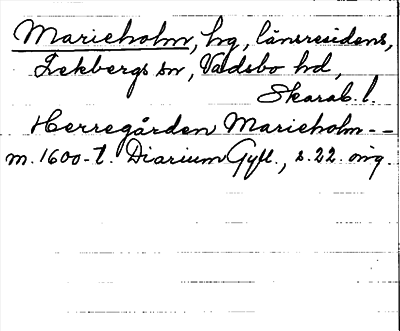 Marieholm, hg, länsresidens,
Lekbergs sn, Vadsbo hd,
Skarab. l.
Herregården Marieholm - -
m. 1600-t. Diarium Gyll., s. 22. omg.